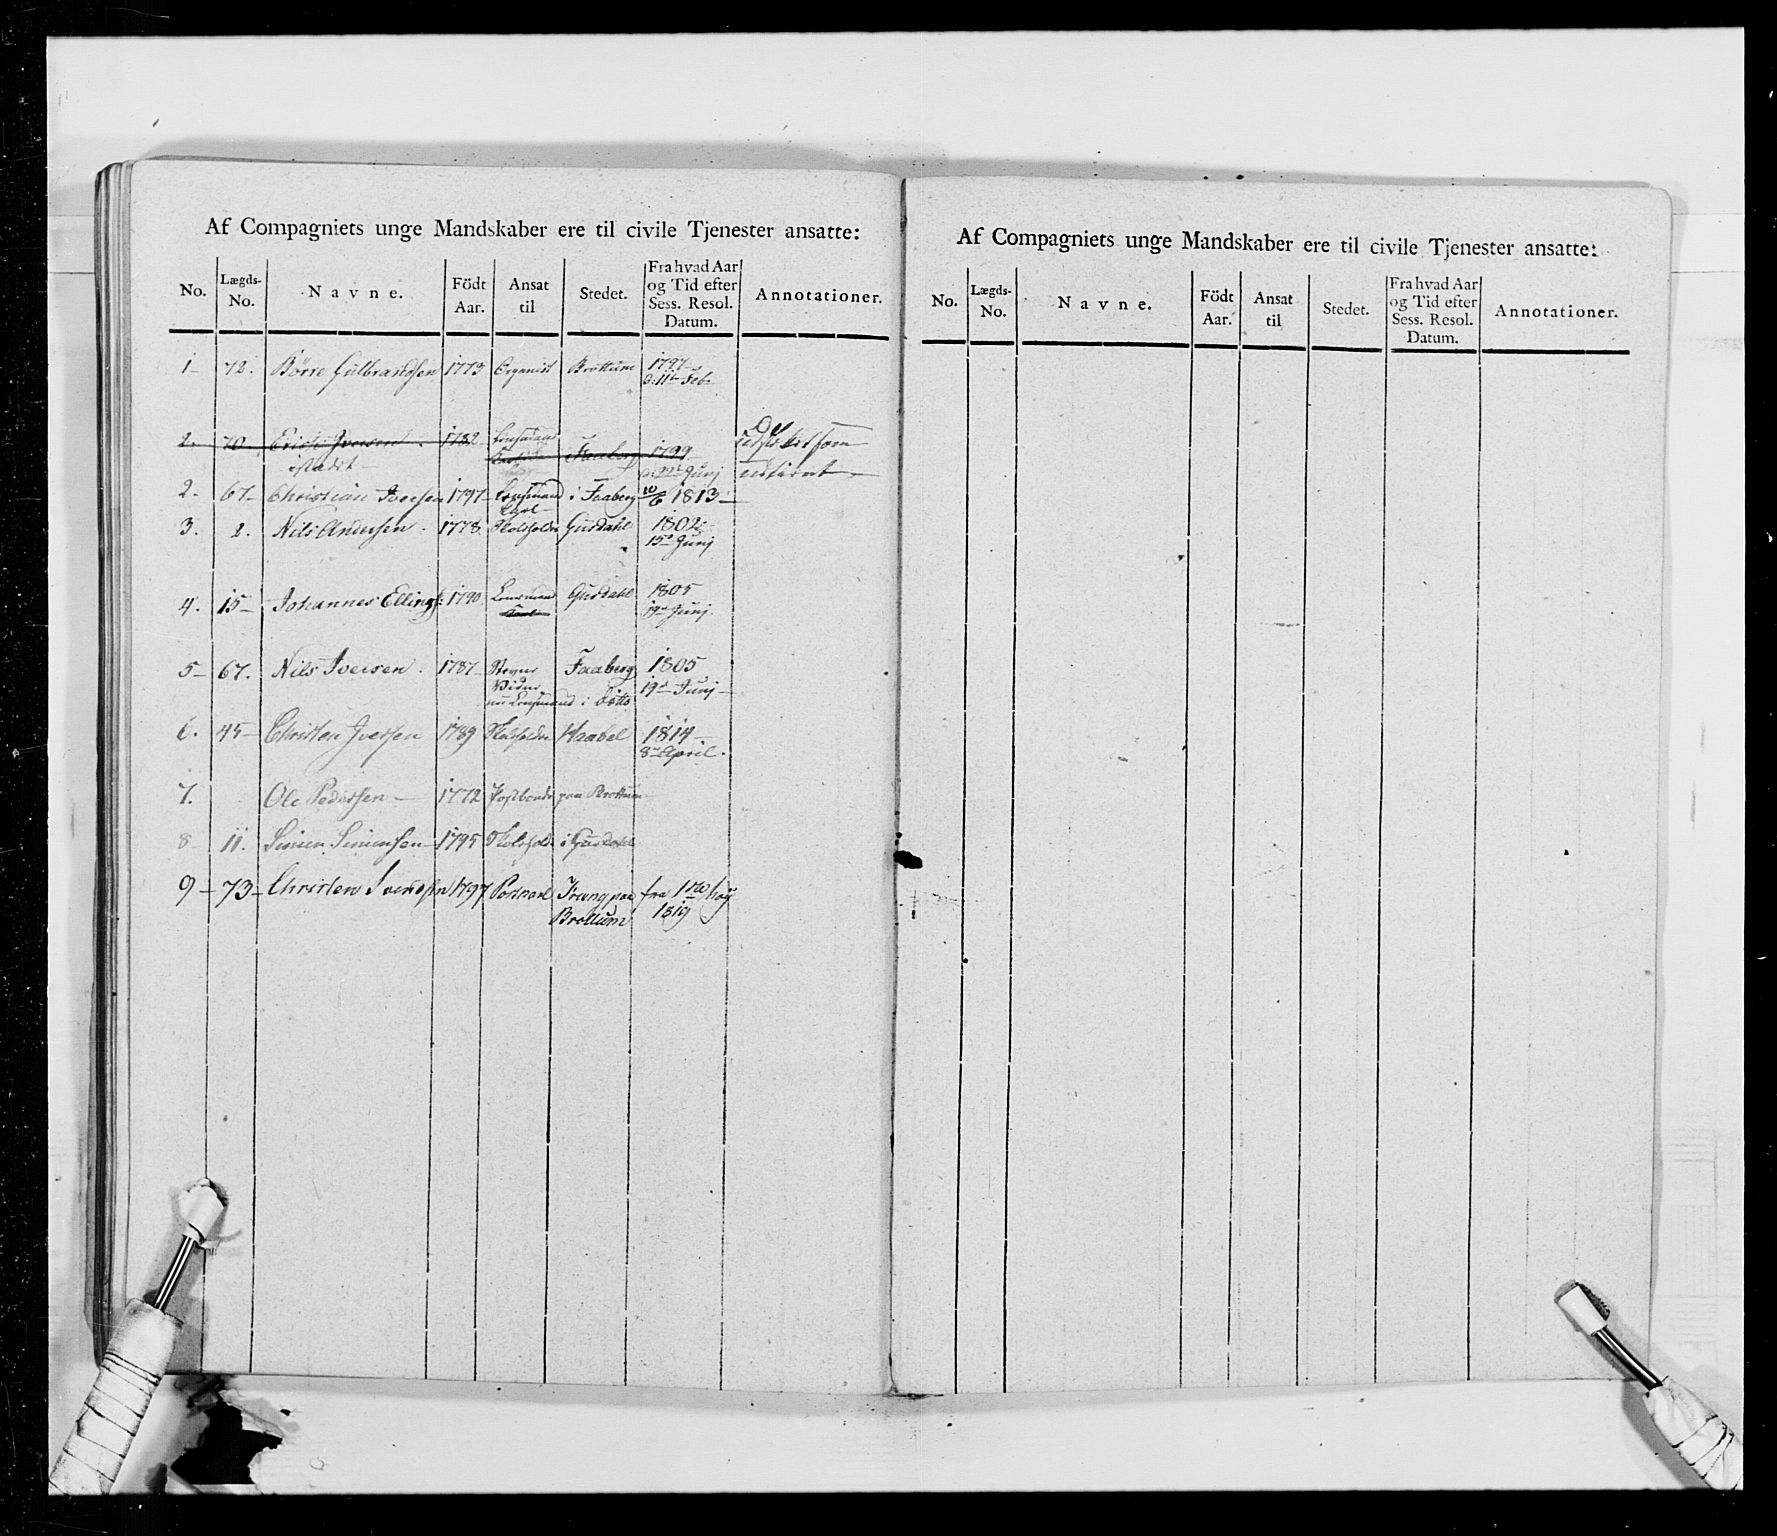 Af Compagniets unge Mandskaber ere til civile Tjenester ansatte:
No. Lægds-No. Navne. Födt Aar. Ansat til Stedet. Fra hvad Aar og Tid efter Sess. Resol. Datum. Annotationer.
1 72. Börre Gulbrandsen 1773 Organist Brøttum 1797
d: 11te Feb
2. 70. Erich Iversen 1782 Lensmand Faaberg 1799
istædet d: 22de Junj
2. 67 Christian Iversen 1797 Lensmand i Faaberg 10/6 1813
Karl
3. 2. Nils Andersen 1778 Skoleholder Gusdahl 1802
15de Junj
4. 15 Johannes Ellings: 1790 Lensmand Gusdahl 1805
Karl 19de Junj
5 67. Nils Iversen 1787 Stevne Faaberg 1805
Vidne 19de Junj
nu Lensmand i ditto
6. 45 Christen Iversen 1789 Skoleholder 1814
8de April.
7. Ole Pedersen 1772 Postbonde paa Brøttum
8 11. Simen Simensen 1795 Skolehold i Gusdahl
9 73 Christen Svendsen 1797 Krueng paa fra
Brøttum 1819
Af Compagniets unge Mandskaber ere til civile Tjenester ansatte:
No. Lægds-No. Navne. Födt Aar. Ansat til Stedet. Fra hvad Aar og Tid efter Sess. Resol. Datum. Annotationer.